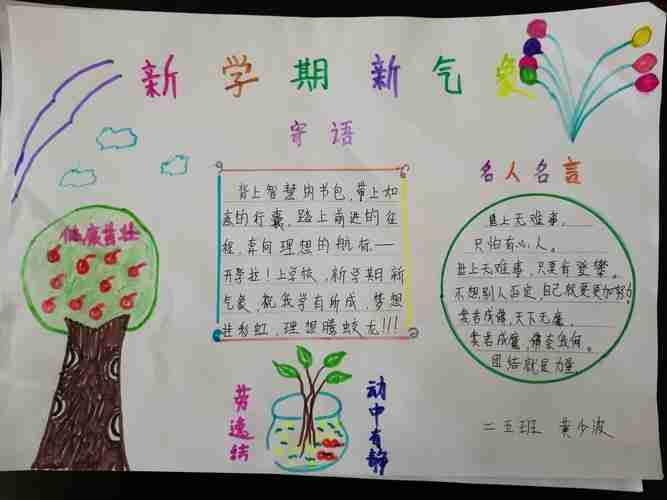 新学期新气象
寄语
背上智慧的书包，带上如
意的行囊，踏上前进的征
程，奔向理想的航标——
开学啦！上学校，新学期新
气象，祝我学有所成，梦想
井彩虹，理想腾蛟龙！！！
名人名言
世上无难事，
只怕有心人。
世上无难事，只要有登攀。
不想别人否定，自己就要更加努力。
卖者成佛，天下无魔，
卖者成魔，佛奈我何。
团结就是力量。
健康茁壮
劳逸结
动中有静
二五班 黄少波